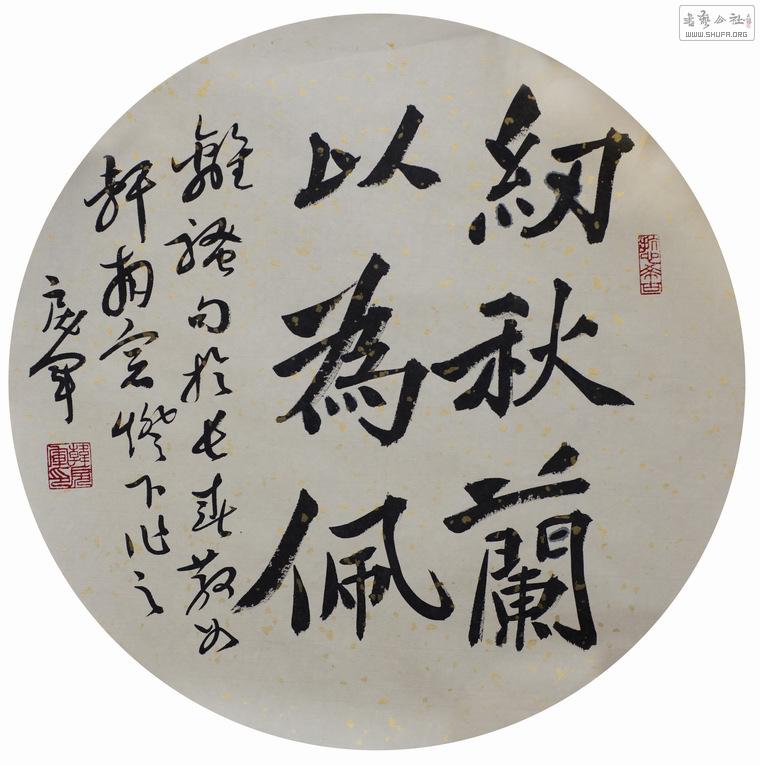 紉秋蘭
以為佩
離騷句於長春
軒南窗燈下作之
軍
書藝公社
WWW.SHUFA.ORG